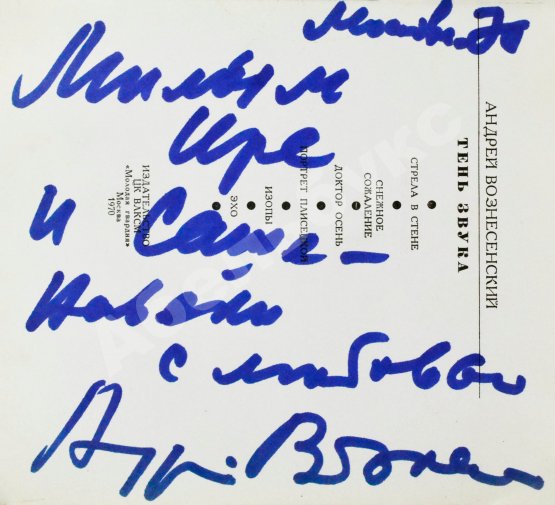 Москва 70
Милым
Ире
и Саше –
навеки
с любовью
Андр. Вознес
АНДРЕЙ ВОЗНЕСЕНСКИЙ
ТЕНЬ ЗВУКА
СТРЕЛА В СТЕНЕ
СНЕЖНОЕ
СОЖАЛЕНИЕ
ДОКТОР ОСЕНЬ
ПОРТРЕТ ПЛИСЕЦКОЙ
ИЗОПЫ
ЭХО
ИЗДАТЕЛЬСТВО
ЦК ВЛКСМ
«Молодая гвардия»
Москва
1970